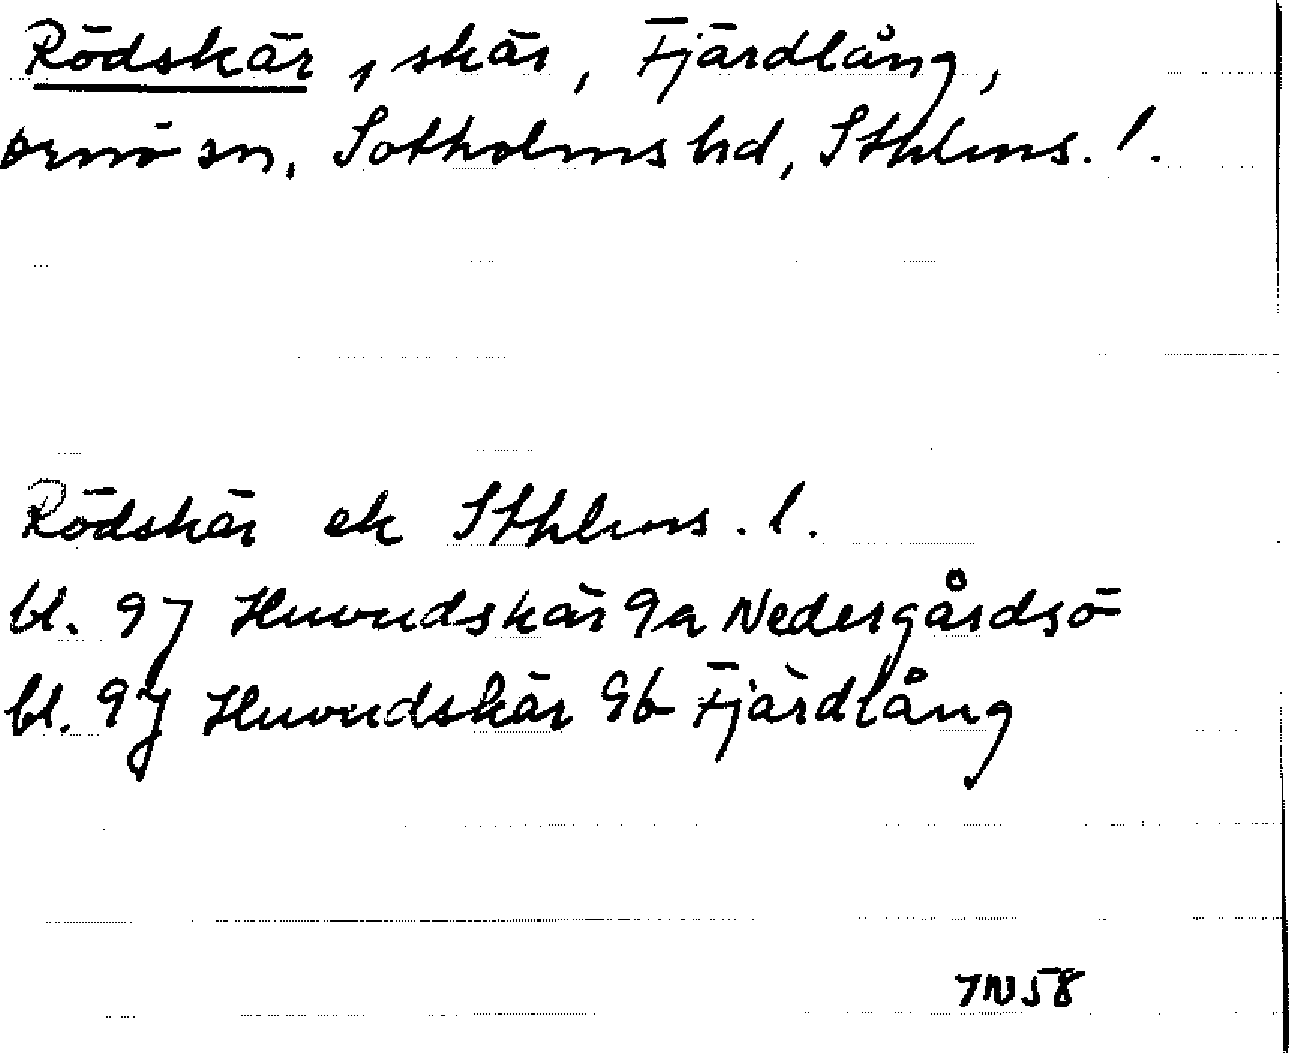 Rödskär, skär, Fjärdlång,
Ornö sn, Sotholms hd, Sthlms. l.
Rödskär ek Sthlms. l.
bl. 97 Huvudskär 9a Nedergårdsö
bl. 97 Huvudskär 9b Fjärdlång
7N58